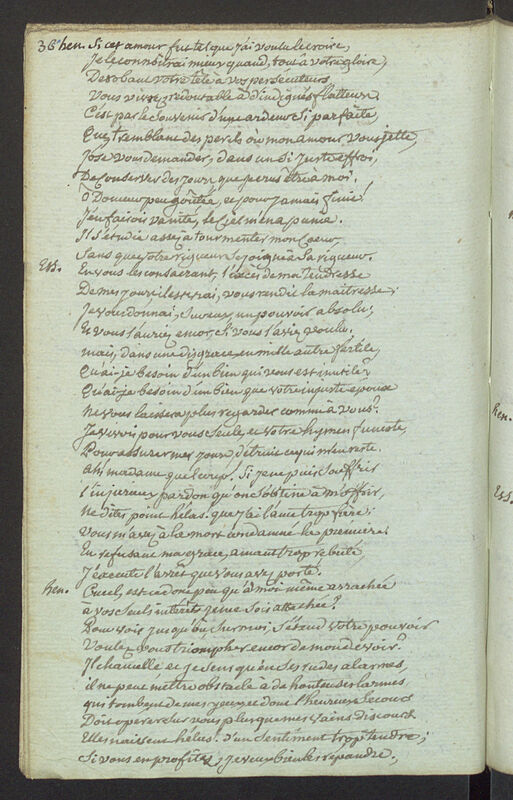 38 hen. Si cet amour fut tel que j'ai voulu le croire,
Je le connoîtrai mieux quand, tout à votre gloire,
Derobant votre tête à vos persecuteurs,
Vous vivrez redoutable à d'indignes flatteurs.
C'est par le souvenir d'une ardeur si parfaite,
Que tremblant des perils où mon amour vous jette,
J'ose vous demander, dans un si juste effroi,
De conserver des jours que j'ai crus être à moi.
ô Douceur peu goûtée, et pour jamais finie!
J'en faisois vanité, le Ciel m'en a punie.
Il s'étudie assez à tourmenter mon Coeur,
Sans que votre rigueur se joigne à sa rigueur.
Ess. En vous les consacrant, l'excès de ma tendresse
De mes jours, il est vrai, vous rendit la maîtresse;
Je vous donnai, sur eux, un pouvoir absolu;
Et vous l'auriez encor, si vous l'aviez voulu.
mais, dans une disgrace en mille autre fertile,
Qu'ai-je besoin d'un bien qui vous est inutile?
Qu'ai-je besoin d'un bien que votre injuste epoux
ne vous laissera plus regarder comme à vous?
Je vivois pour vous seule, et votre hymen funeste,
Pour assurer mes jours détruit ce qui m'en reste.
ah, madame quel coup. Si je ne puis souffrir
l'injurieux pardon qu'on s'obstine à m'offrir,
ne dites point hélas. que j'ai l'ame trop fiere;
Vous m'avez à la mort condamné la premiere:
En refusant ma grace, amant trop rebuté,
J'execute l'arrêt que vous avez porté.
hen. Cruel, est-ce donc peu qu'à moi même arrachée
a vos seuls intérêts je me sois attachée?
Pour voir jusqu'où sur moi s'étend votre pouvoir
Voulez vous triompher encor de mon devoir?
Il chancelle et je sens qu'en ses rudes alarmes,
il ne peut mettre obstacle à de honteuses larmes,
qui tombent de mes yeux et dont l'heureux secours
Doit operer sur vous plus que mes vains discours
Elles naissent hélas. d'un sentiment trop tendre;
Si vous en profitez, je veux bien les repandre,
hen.
Ess.